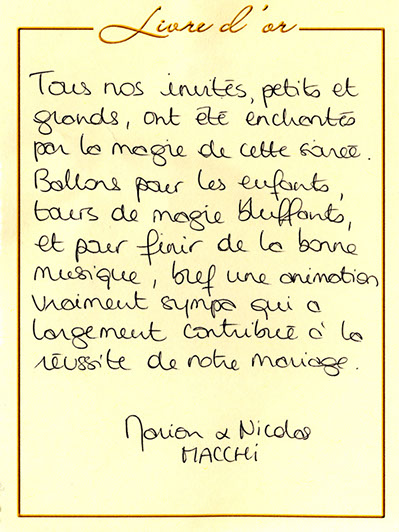 Livre d'or
Tous nos invités, petits et
grands, ont été enchantés
par la magie de cette soirée.
Ballons pour les enfants,
tours de magie bluffants,
et pour finir de la bonne
musique, bref une animation
vraiment sympa qui a
largement contribuée à la
réussite de notre mariage.
Marion & Nicolas
MACCHI